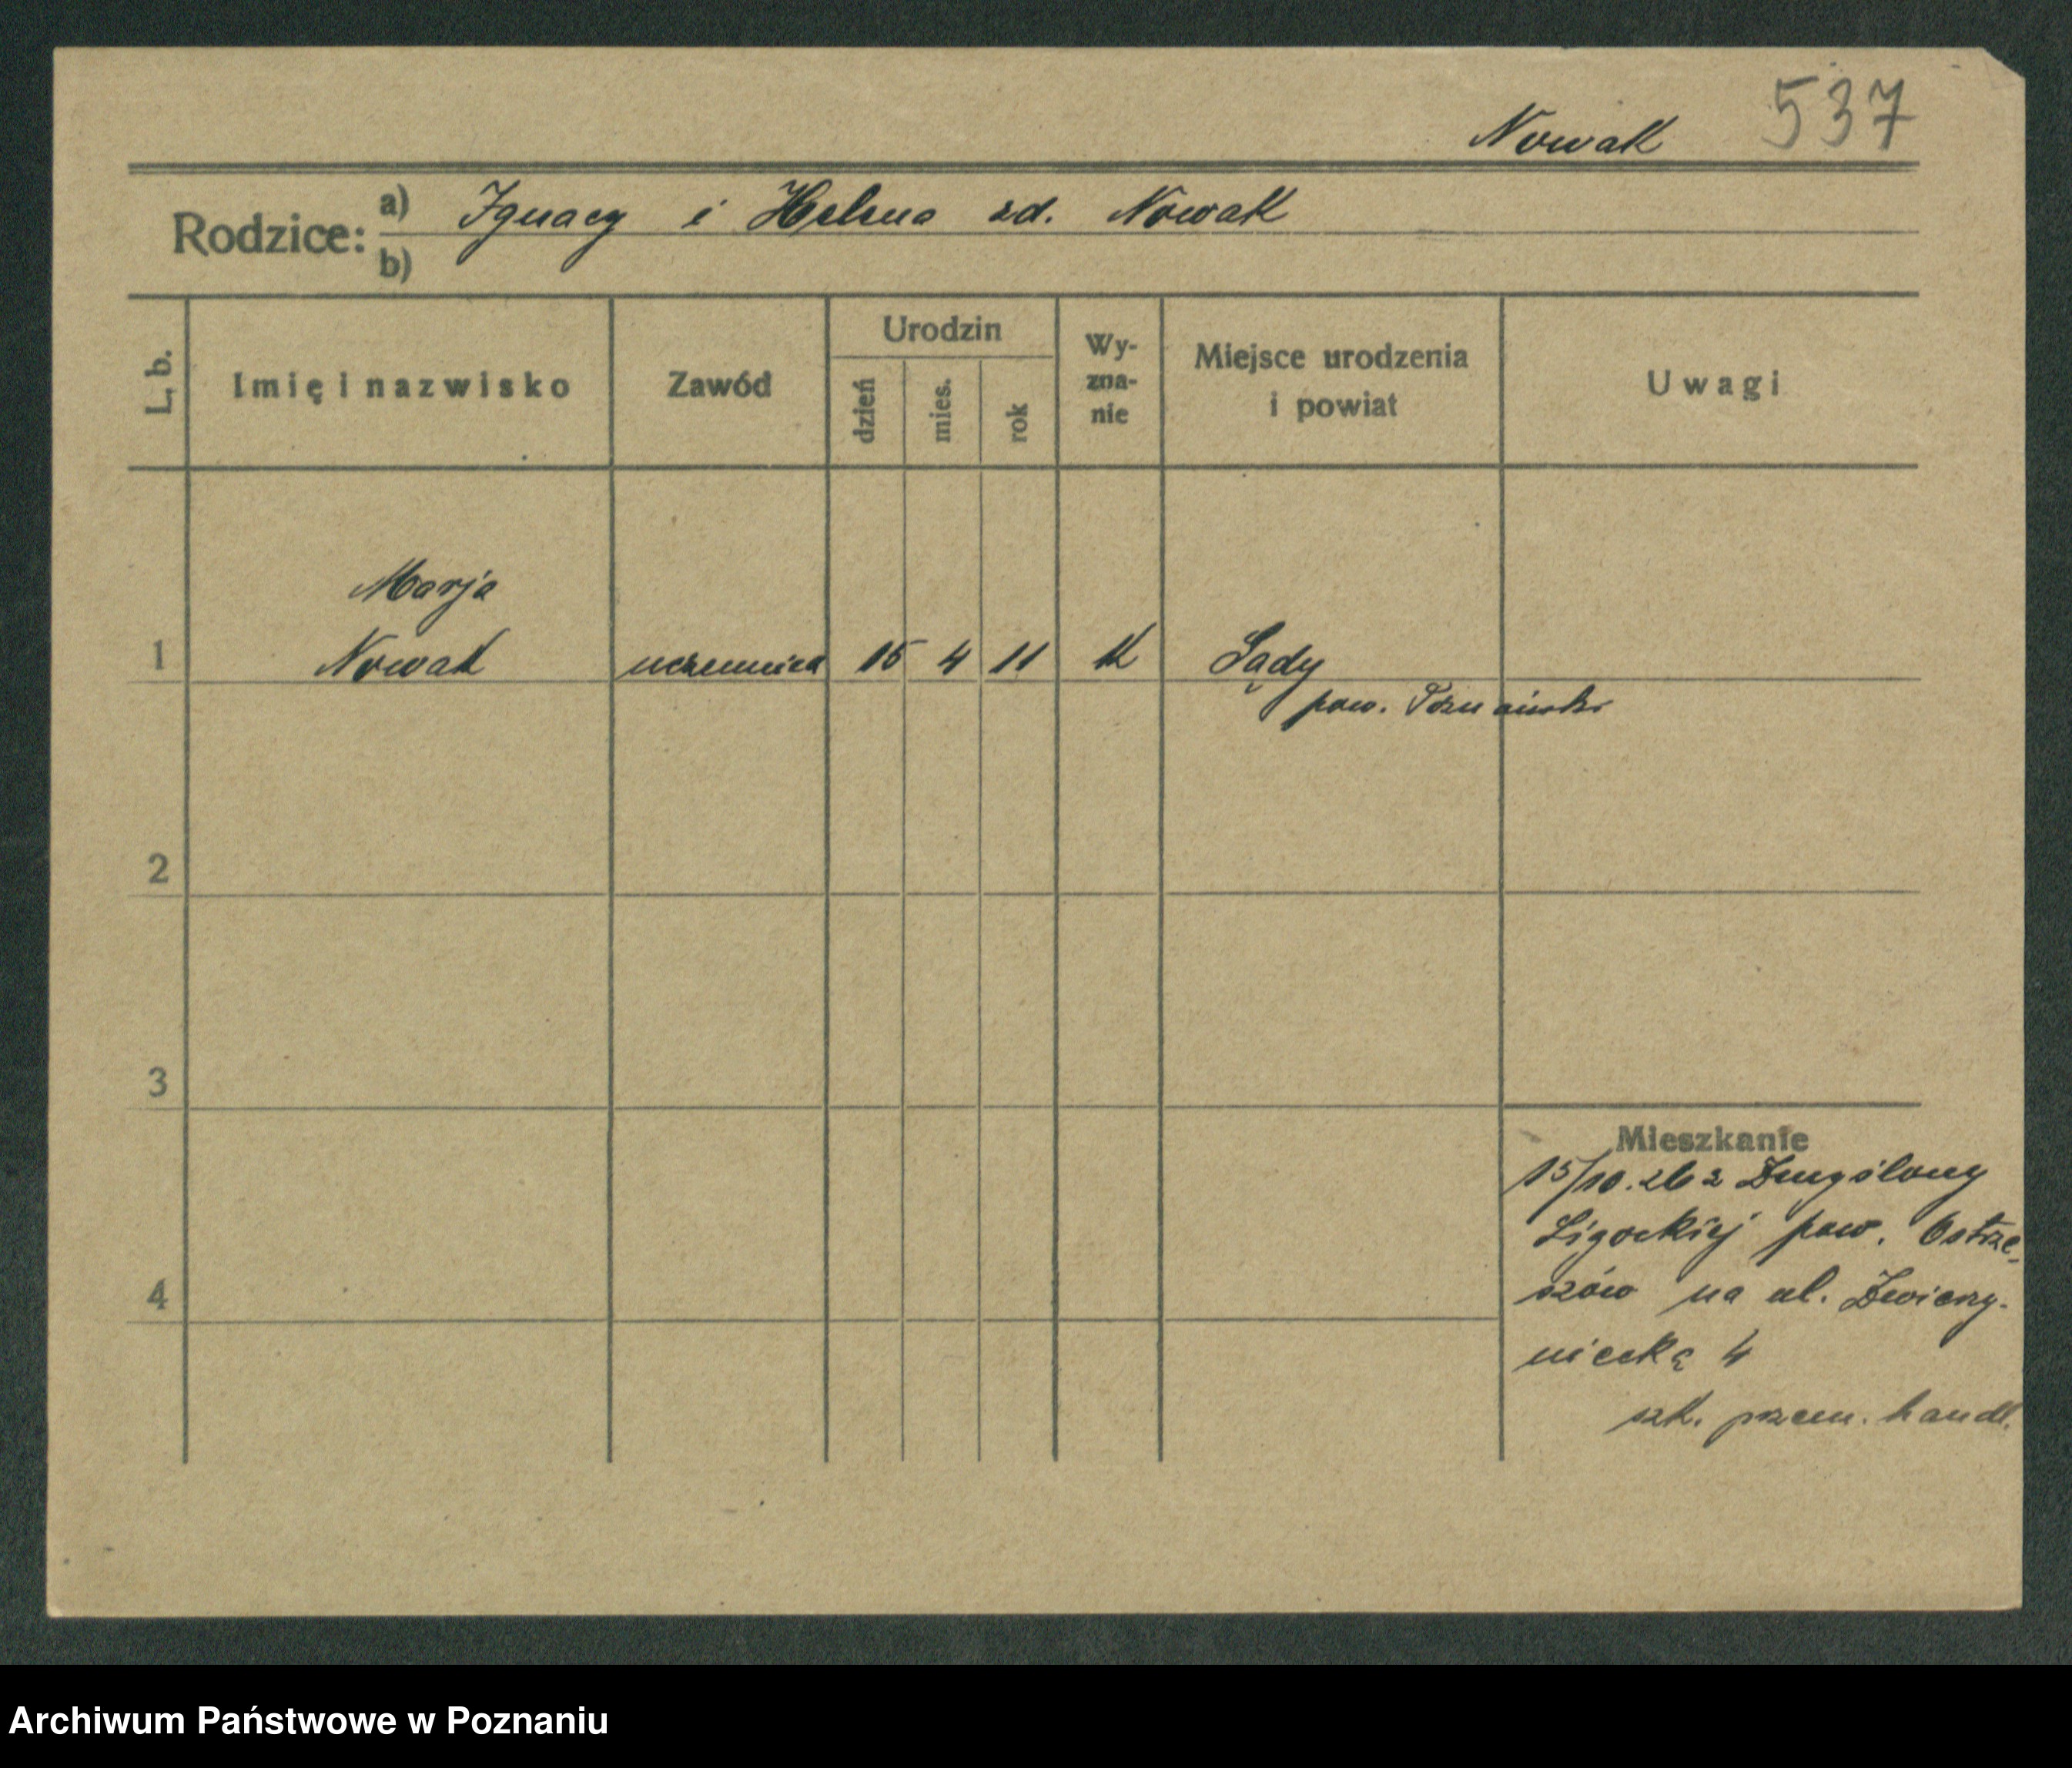 Nowak 537
Rodzice: a) Ignacy i Helena zd. Nowak
b)
L. b. Imię i nazwisko Zawód Urodzin dzień mies. rok Wy-zna-nie Miejsce urodzenia i powiat Uwagi
Marja
1 Nowak uczennica 15 4 11 K Sady
pow. Poznański
2
3
Mieszkanie
15/10.26 z Zmyślony
Ligockiej pow. Ostrze-
4 szów na ul. Zwierzy-
niecką 4
szk. przem. handl.
Archiwum Państwowe w Poznaniu